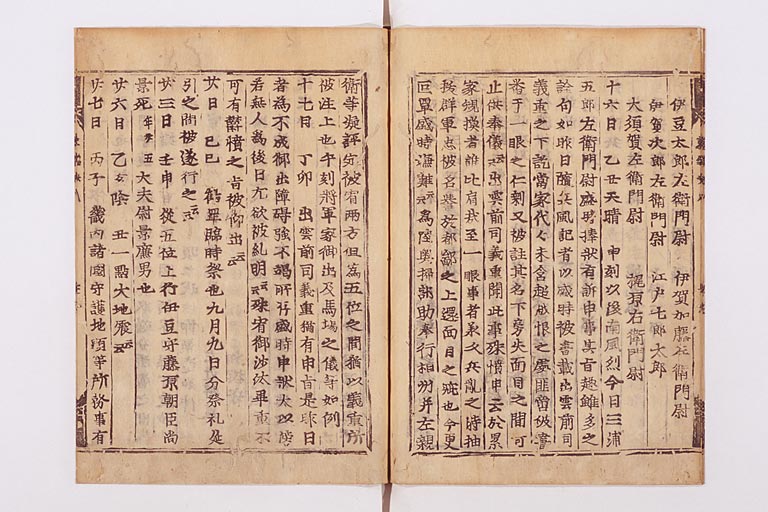 伊豆太郎左衛門尉 伊賀加藤左衛門尉
伊賀次郎左衛門尉 江戸七郎太郎
大須賀左衛門尉 梶原右衛門尉
十六日乙丑天晴 申刻以後南風烈今日三浦
五郎左衛門尉盛時捧狀有所申事其旨趣雖多之
詮句如昨日隨兵風記者以盛時被書載出雲前司
義重之下訖當家代々未含超越恨之處匪啻被書
番于一眼之仁剩又被註其名下旁失面目之間可
止供奉儀云云出雲前司義重聞此事殊憤申云於累
家規摸者誰比肩哉至一眼事者承久兵乱之時抽
抜群軍忠被名譽於都鄙之上還面目之疵也今更
盛時難云云爲陸奥掃部助奉行相州并左親
衛等凝評定被宥兩方但爲五位之間猶以義重所
被注上也午刻將軍家御出及馬場之儀等如例
十七日 丁卯 出雲前司義重猶有申旨是昨日
者爲不成御出障碍強不竭所存盛時申狀太以傍
若無人爲後日尤欲被糺明云云殊有御沙汰畢重不
可有欝憤之旨被仰出云云
廿日 己巳 鶴臨時祭也九月九日分祭礼延
引之間被遂行之云云
廿三日 壬申 從五位上行伊豆守藤原朝臣尚
景死年五大夫尉景廉男也
廿六日 乙亥陰 丑一點大地震云云
廿七日 丙子 畿内諸國守護地頭等所務事有